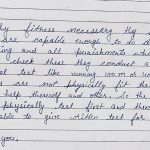 by fitness necessary they
are capable enough to do
ing and all punishments
check there they conduct a
al test like running 100 m or
are not physically fit the
help themself and other
physically test first and then
able to give written test for
you,